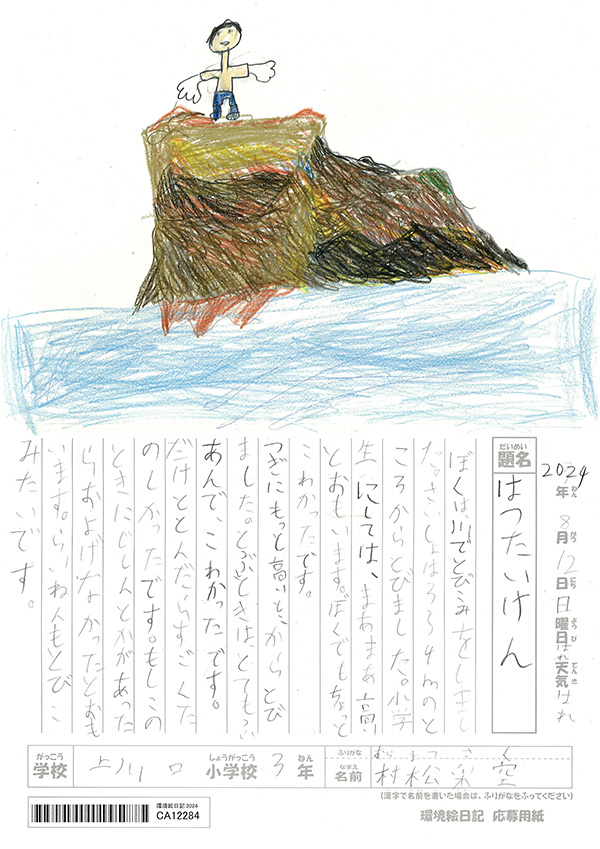 2024年 8月 12日 日曜日 はれ 天気 はれ
ねん がつ にち ようび てんき
だいめい
題名
はつたいけん
ぼくは、川でとびこみをしまし
た。さいしょはろう4mのと
ころからとびました。小学
生にしては、まあまあ高い
とおもいます。ぼくでもちょっと
こわかったです。
つぎにもっと高いとこからとび
ました。とぶときは、とても
あんで、こわかったです。
だけととんだらすごくた
のしかったです。もしこの
ときにじしんとかがあった
らおよげなかったとおも
います。らいねんもとびこ
みたいです。
がっこう しょうがっこう ねん ふりがな むらまつ さく
学校 上川口 小学校 3年 なまえ 名前 村松 空
(漢字で名前を書いた場合は、ふりがなをふってください)
環境絵日記 2024
CA12284
環境絵日記 応募用紙